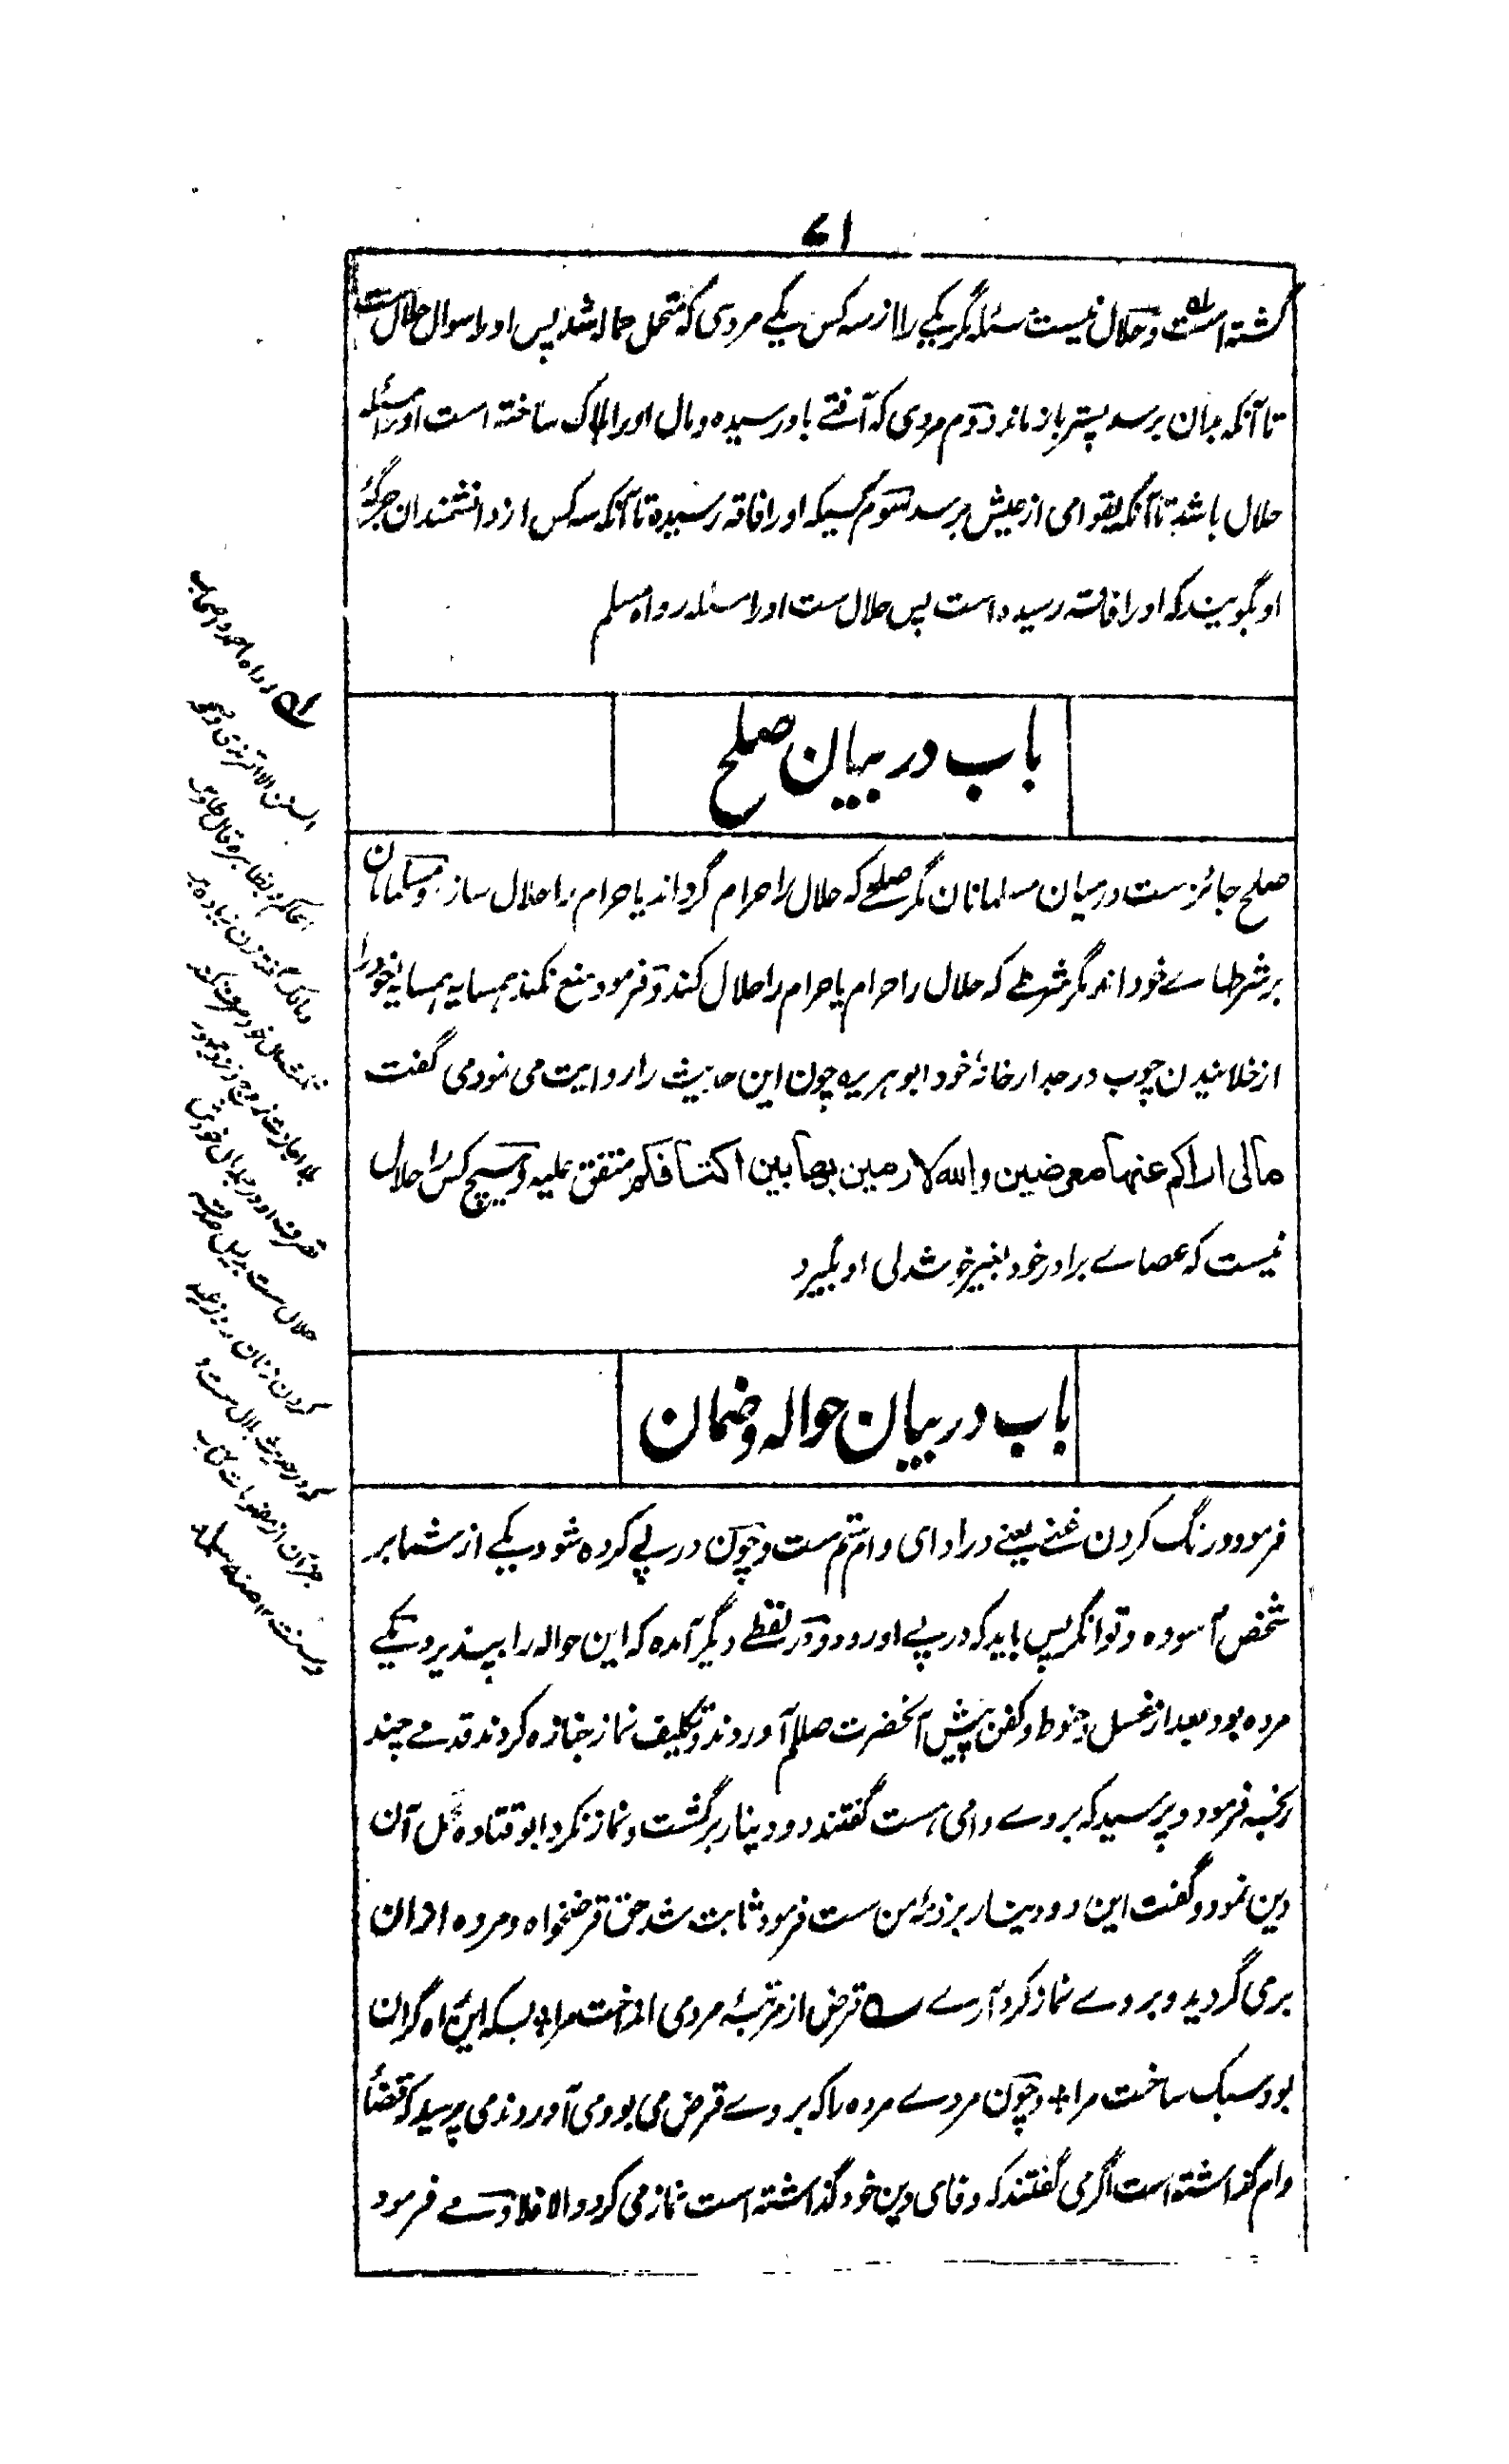 ۷۱
گشته است و حلال نیست سئله مگر یکے را از سه کس یکے مردی که متحمل حماله شد پس او را سوال حلال ست
تا آنکه بدان برسد پستر باز ماند دوم مردی که آفتے باو رسیده و مال او را هلاک ساخته است او را مسئله
حلال باشد تا آنکه بقوامی از عیش برسد سوم کسیکه او را فاقه رسیده تا آنکه سه کس از دانشمندان جرگهٔ
او بگویند که او را فاقه رسیده است پس حلال ست او را مسئله رواه مسلم
باب در بیان صلح
صلح جائزست درمیان مسلمانان مگر صلحے که حلال را حرام گرداند یا حرام را حلال سازد و مسلمانان
بر شرطهاے خود اند مگر شرطے که حلال را حرام یا حرام را حلال کند و فرمود منع نکند همسایه همسایهٔ خود را
از خلانیدن چوب در جدار خانهٔ خود ابو هریره چون این حدیث را روایت می نمود می گفت
مالی اراکم عنها معرضین والله لارمین بها بین اکتافکم متفق علیه و هیچ کس را حلال
نیست که عصاے برادر خود بغیر خوشدلی او بگیرد
باب در بیان حواله و ضمان
فرمود درنگ کردن غنے یعنے در ادای وام ستم ست و چون درپے کرده شود یکے از شما بر
شخص آسوده و توانگر پس باید که درپے او رود و در لفظے دیگر آمده که این حواله را بپذیرد یکے
مرده بود بعد از غسل و حنوط و کفن پیش آنحضرت صللم آوردند و تکلیف نماز جنازه کردند قدمے چند
رنجه فرمود و پرسید که بر وے وامی هست گفتند دو دینار برگشت و نماز نکرد ابو قتاده تحمل آن
دین نمود و گفت این دو دینار بر ذمهٔ من ست فرمود ثابت شد حق قرضخواه و مرده ازان
بری گردید و بر وے نماز کرد آرے ــه قرض از مرتبهٔ مردی انداخت مرا + بسکه این راه گران
بود سبک ساخت مرا + و چون مردے مرده را که بر وے قرض می بود می آوردند می پرسید که قضاٴ
وام گذاشته است اگر می گفتند که وفای دین خود گذاشته است نماز می کرد والا فلا و مے فرمود
رواه احمد و اصحاب
السنن الا الترمذی و صححه